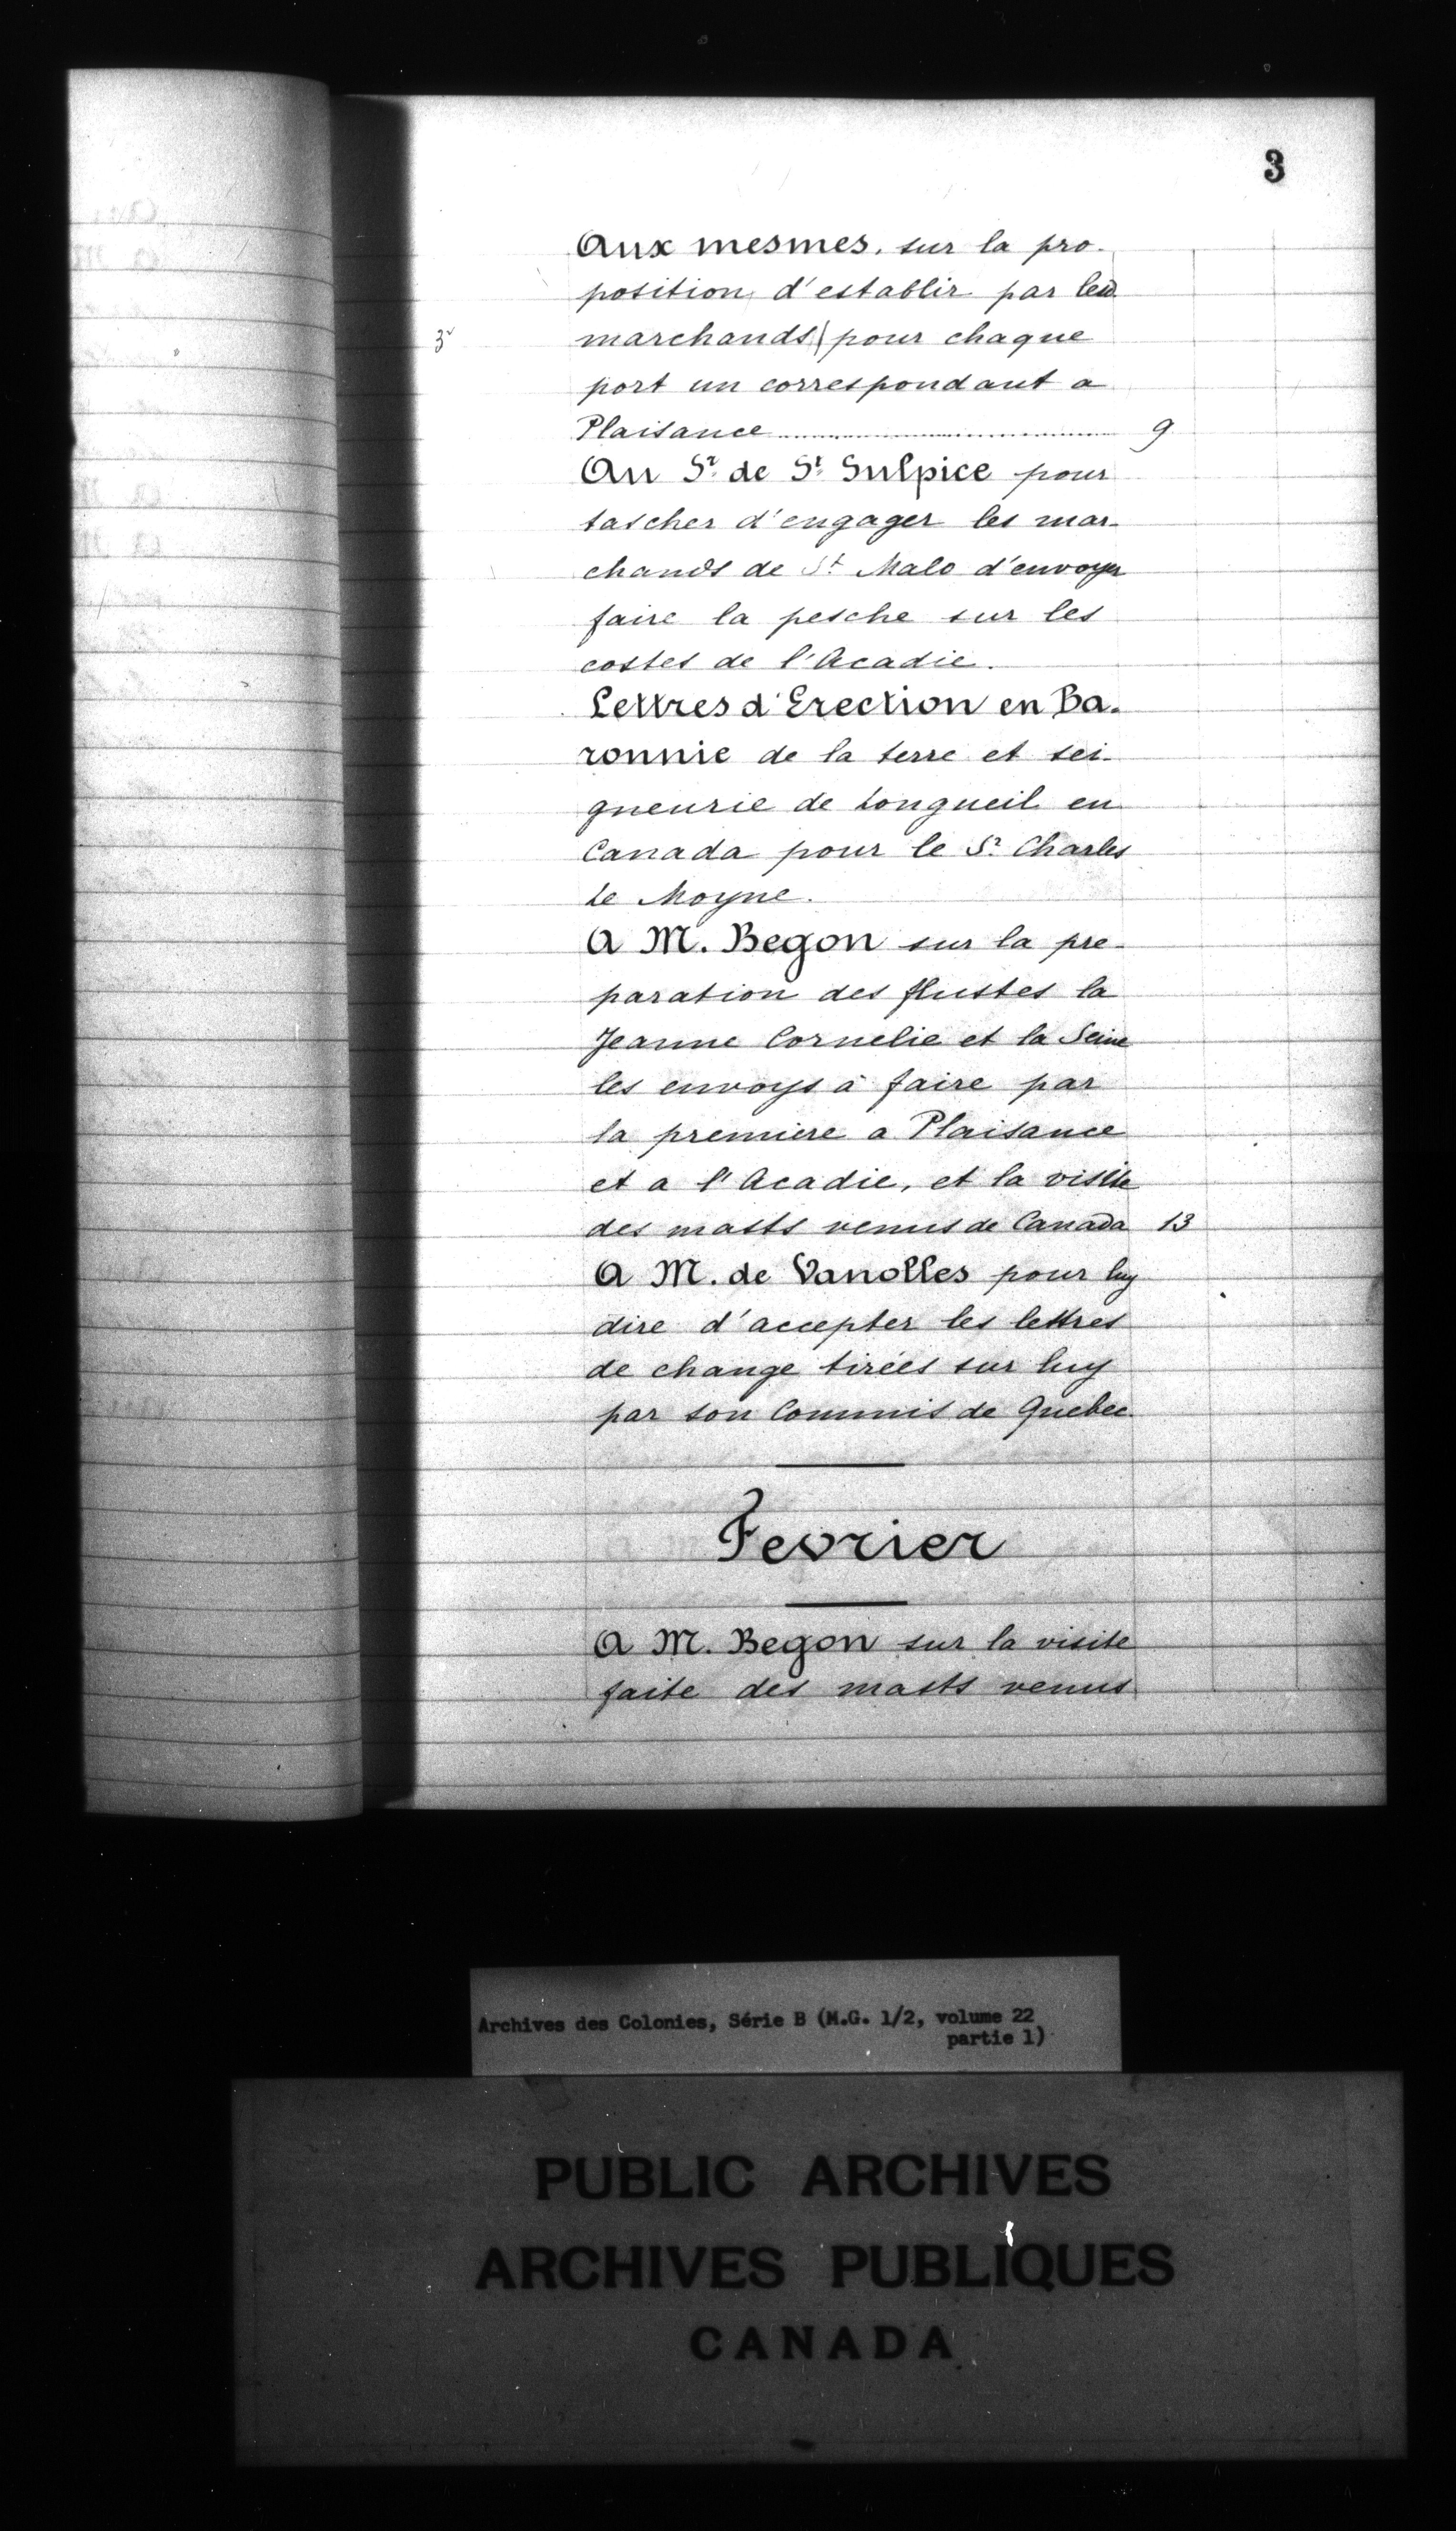 3
Aux mesmes, sur la pro-
position d'establir par les d.
3v
marchands | pour chaque
port un correspondant a
Plaisance 9
Au Sr. de St. Sulpice pour
tascher d'engager les mar-
chands de St Malo d'envoyer
faire la pesche sur les
costes de l'Acadie.
Lettres d'Erection en Ba-
ronnie de la terre et sei-
gneurie de Longueil en
Canada pour le Sr. Charles
Le Moyne.
A M. Begon sur la pre-
paration des flustes la
Jeanne Cornelie et la Seine
les envoys à faire par
la premiere a Plaisance
et a l'Acadie, et la visite
des masts venus de Canada 13
A M. de Vanolles pour luy
dire d'accepter les lettres
de change tirées sur luy
par son Commis de Quebec
Fevrier
A M. Begon sur la visite
faite des masts venus
Archives des Colonies, Série B (M.G. 1/2, volume 22
partie 1)
PUBLIC ARCHIVES
ARCHIVES PUBLIQUES
CANADA